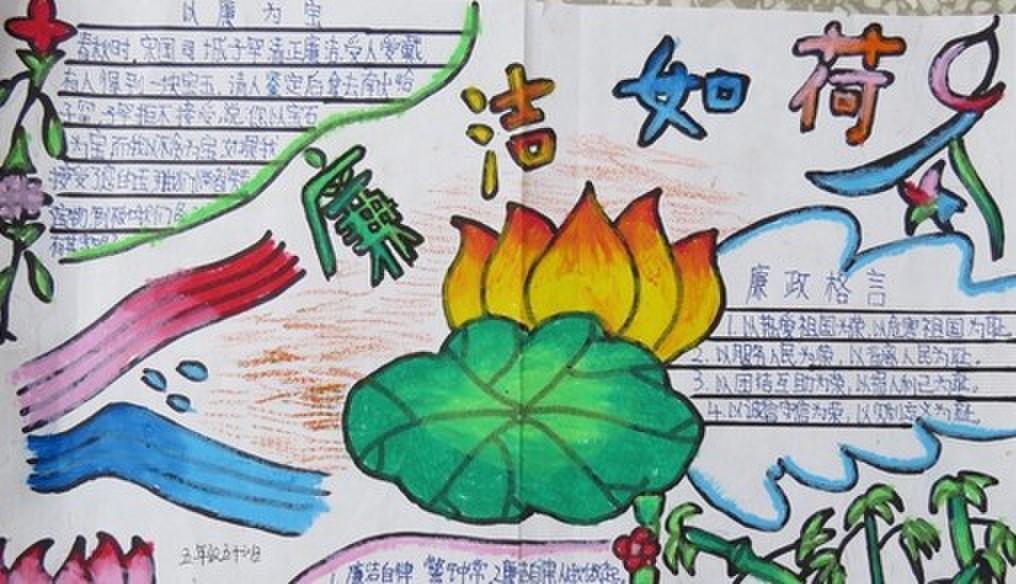 以廉为宝
春秋时,宋国司城子罕清正廉洁,受人爱戴
有人得到一块宝玉,请人鉴定后拿去献给
子罕,子罕拒不接受,说:您以宝石
为宝,而我以不贪为宝,如果我
接受了您的玉,那我们俩
宝物
廉洁如荷
廉政格言
1.以热爱祖国为荣,以危害祖国为耻。
2.以服务人民为荣,以背离人民为耻。
3.以团结互助为荣,以损人利己为耻。
4.以诚信守信为荣,以见利忘义为耻。
五年级
1.廉洁自律